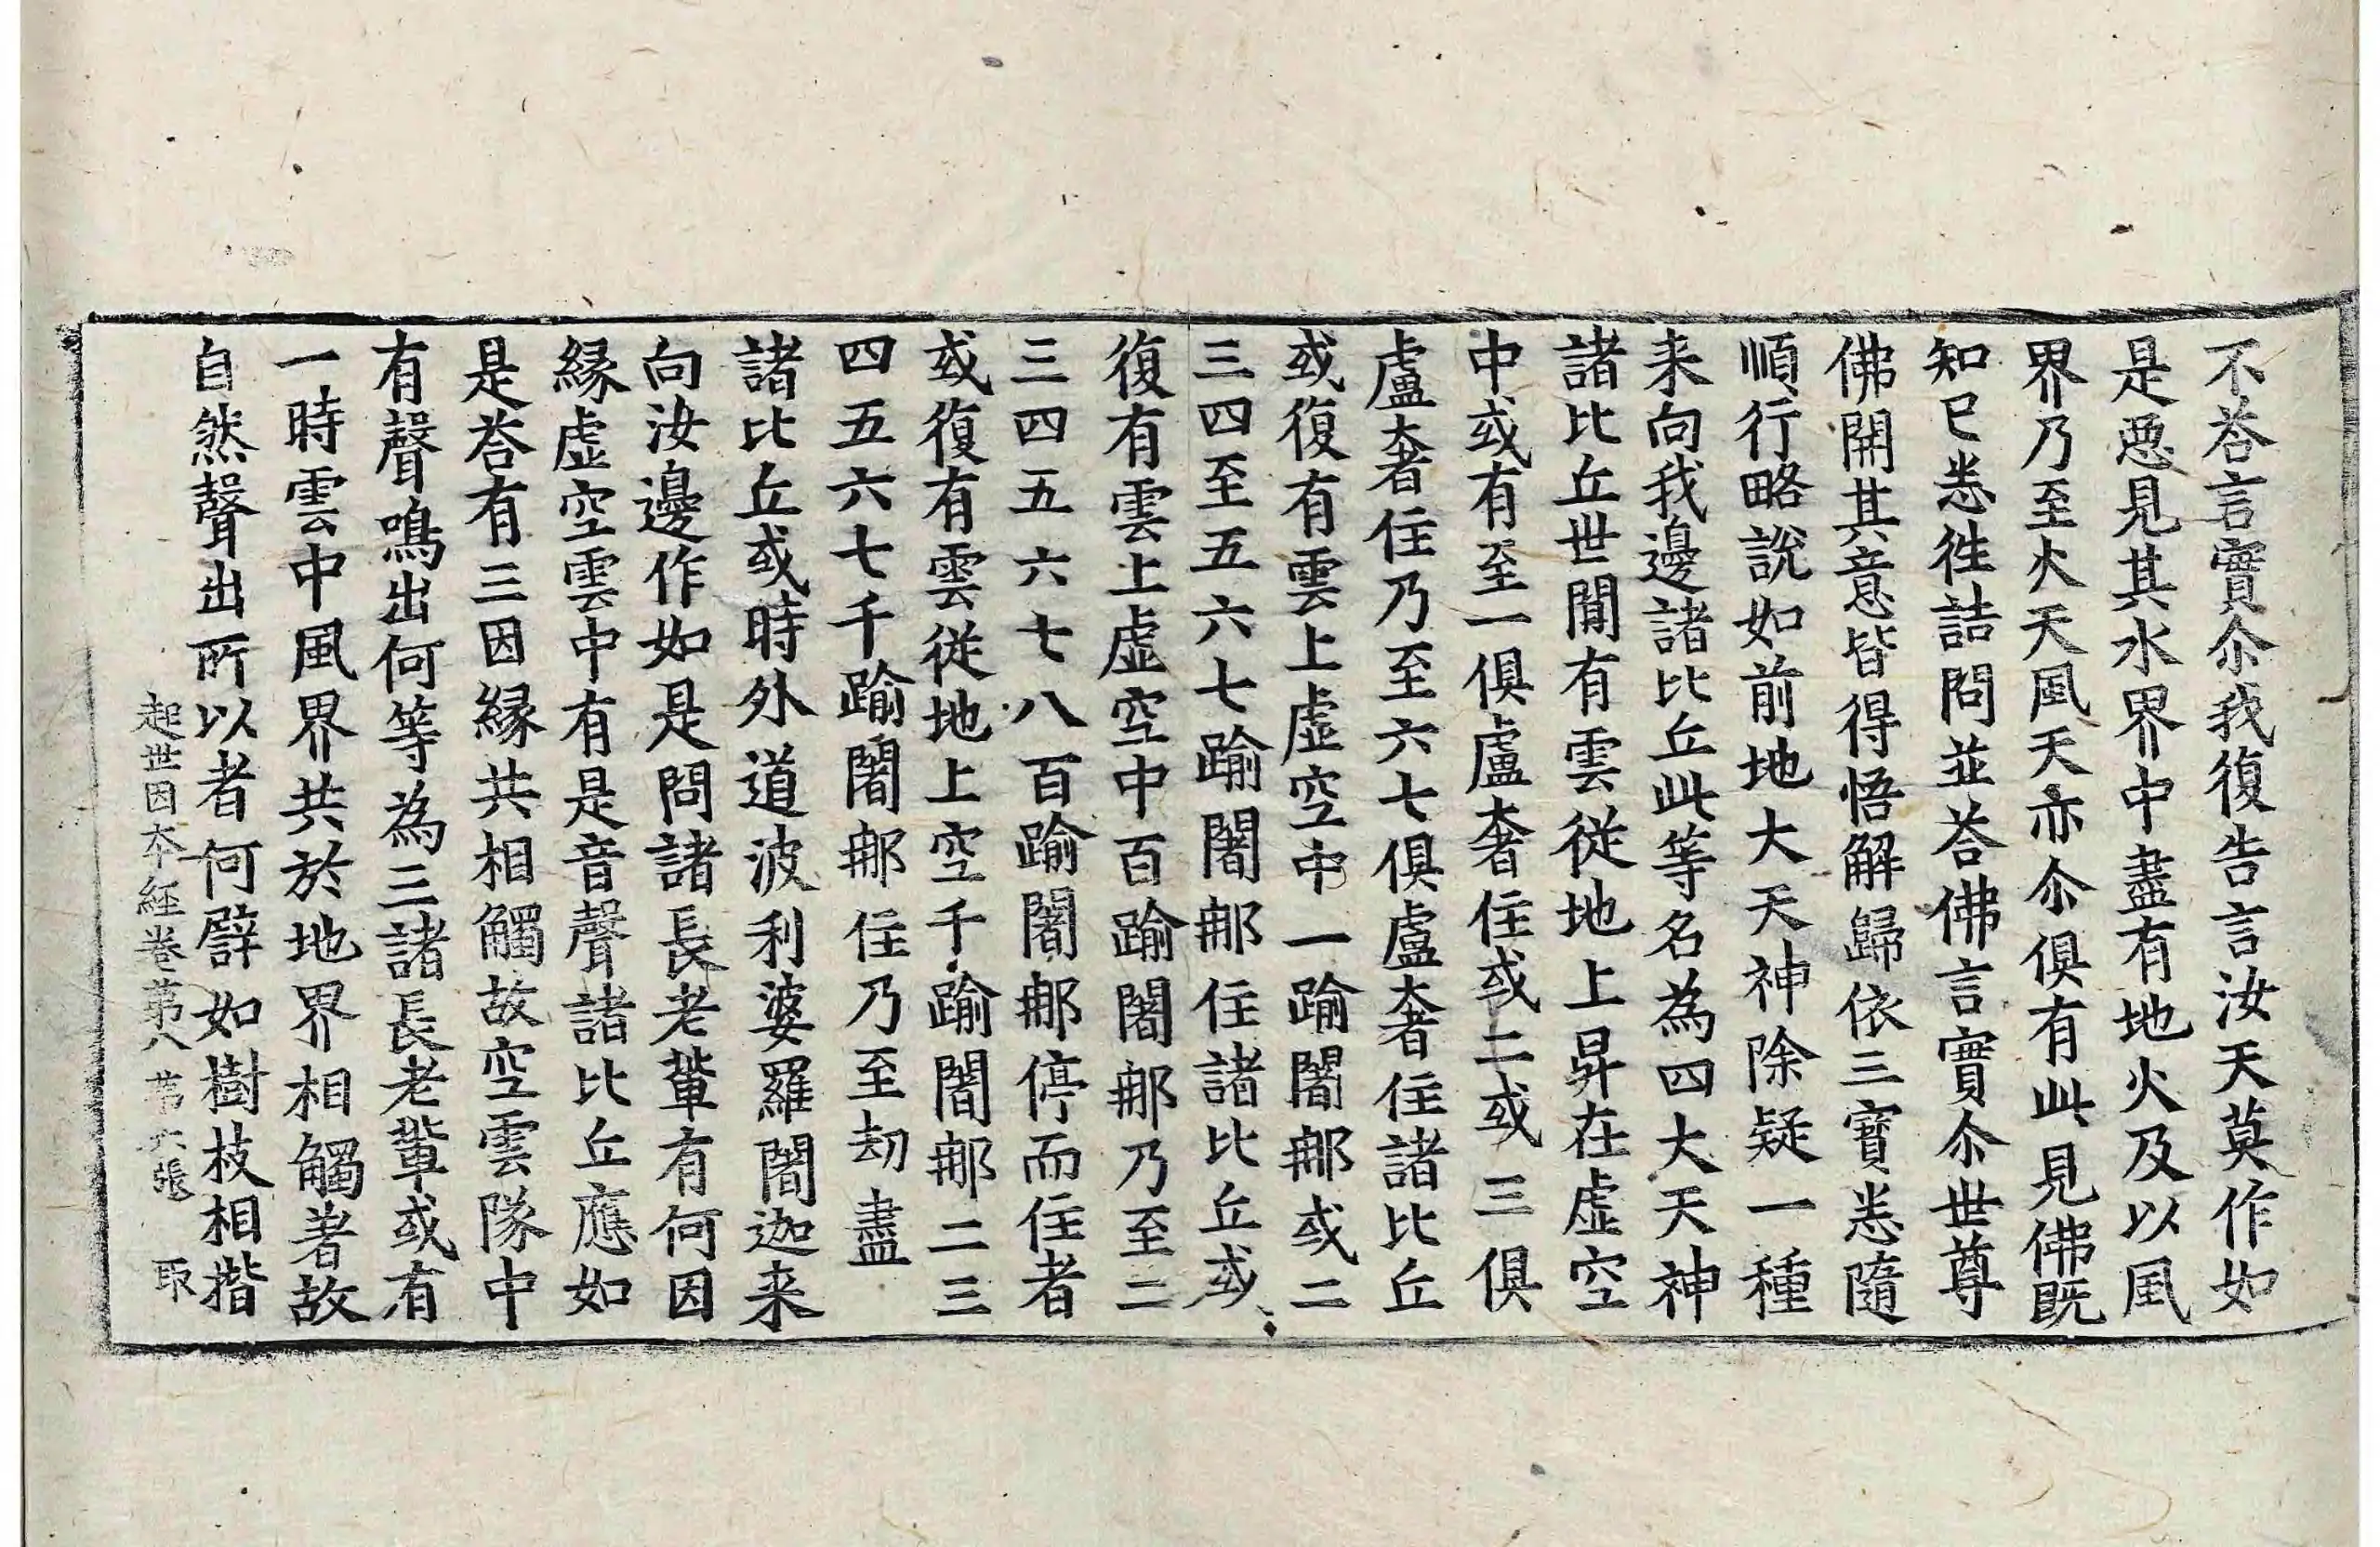 不荅言實尒我復告言汝天莫作如
是惡見其水界中盡有地火及以風
界乃至火天風天亦尒俱有此見佛既
知已悉徃詰問並荅佛言實尒世尊
佛開其意皆得悟解歸依三寶悉隨
順行略說如前地大天神除疑一種
来向我邊諸比丘此等名為四大天神
諸比丘世間有雲從地上昇在虛空
中或有至一俱盧奢住或二或三俱
盧奢住乃至六七俱盧奢住諸比丘
或復有雲上虛空中一踰闍那或二
三四至五六七踰闍那住諸比丘或
復有雲上虛空中百踰闍那乃至二
三四五六七八百踰闍那停而住者
或復有雲從地上空千踰闍那二三
四五六七千踰闍那住乃至刧盡
諸比丘或時外道波利婆羅闍迦来
向汝邊作如是問諸長老輩有何因
縁虛空雲中有是音聲諸比丘應如
是荅有三因縁共相觸故空雲隊中
有聲鳴出何等為三諸長老輩或有
一時雲中風界共於地界相觸著故
自然聲出所以者何譬如樹枝相揩
起世因本経卷第八 第六張 取